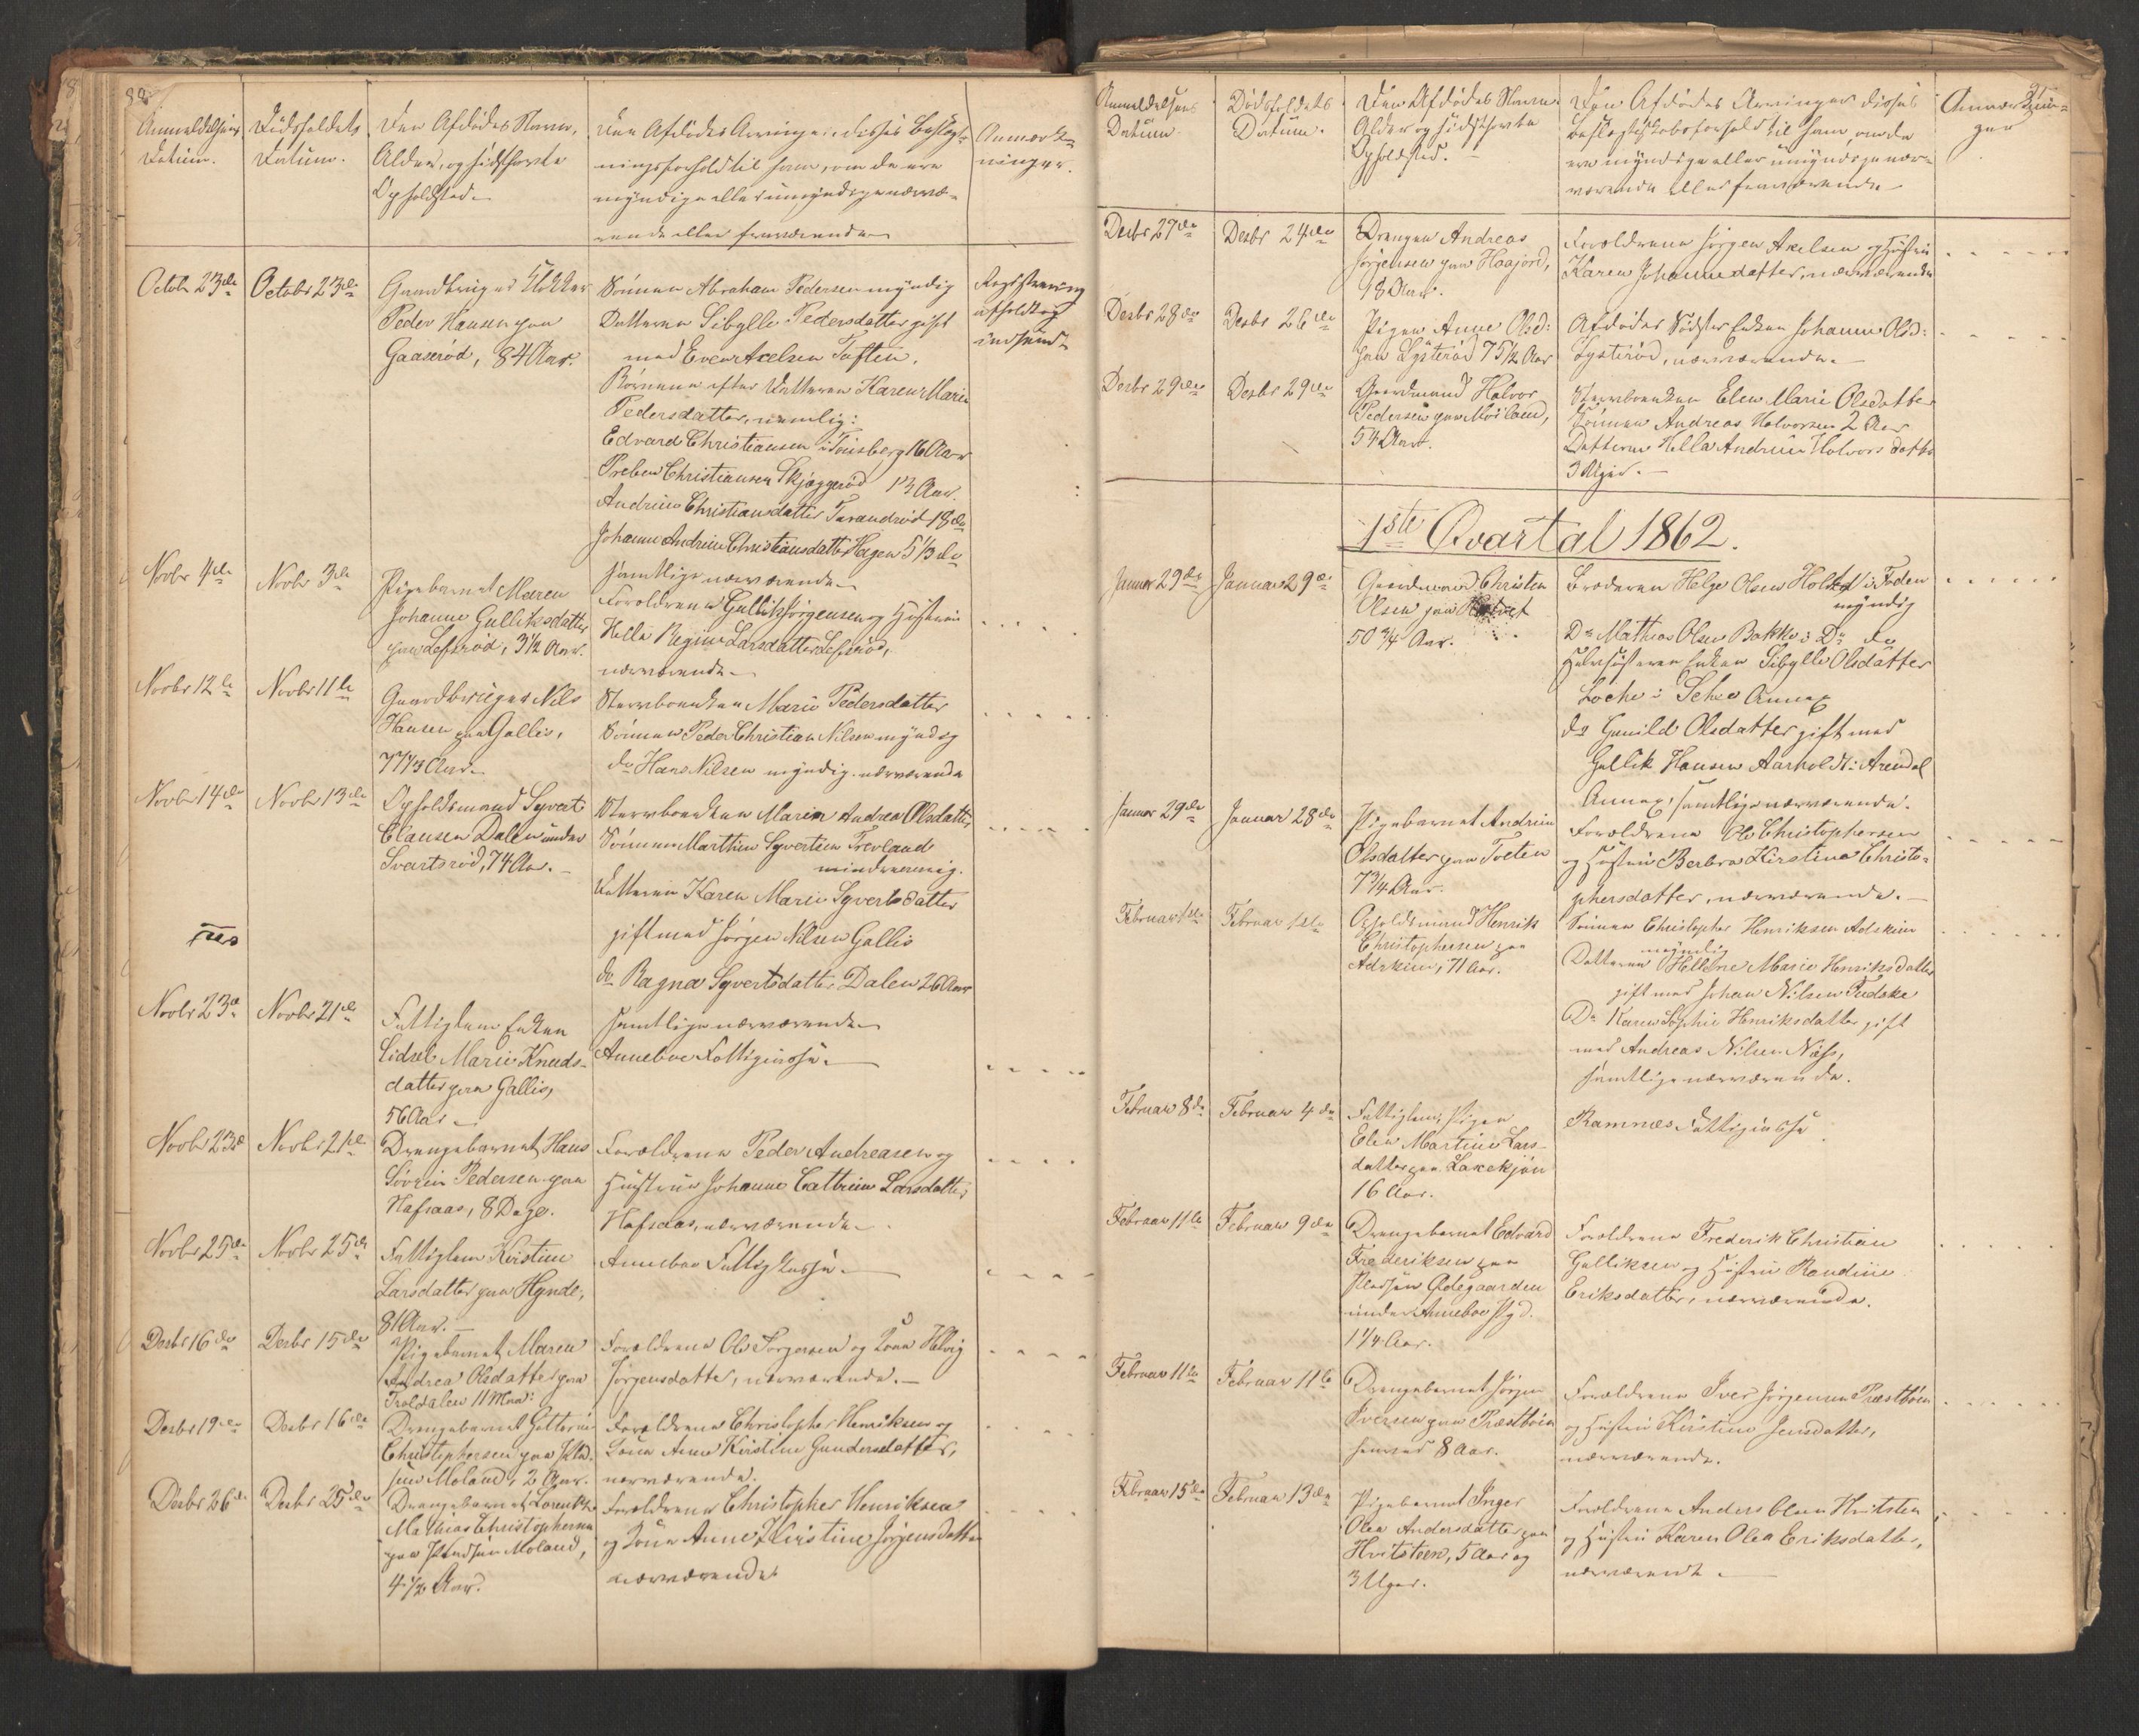 Anmeldelsens
Datum.
Dødsfaldets
Datum.
Den Afdødes Navn,
Alder, og sidst havte
Opholdsted.
Den Afdødes Arvinger, disses Beslægt-
ningsforhold til ham, om de ere
myndige eller umyndige nærvæ-
rende eller fraværende
Anmærk-
ninger.
Octobr 23de
Octobr 23de
Gaardbruger Klokker
Peder Hansen paa
Gaaserød, 84 Aar.
Sønnen Abraham Pedersen myndig
Datteren Sibylle Pedersdatter gift
med Even Axelsen Toften.
Børnene efter Datteren Karen Marie
Pedersdatter, nemlig:
Edvard Christiansen i Tønsberg 16 Aar
Preben Christiansen Skjeggerød 13 Aar.
Andrine Christiansdatter Tarandrød 18 do
Johanne Andrine Christiansdatter Hagen 5 1/3 do
samtlige nærværende
Registrering
afholdt og
indsendt
Novbr 4de
Novbr 3de
Pigebarnet Maren
Johanne Gulliksdatter
paa Lefsrød, 3 1/2 Aar.
Forældrene Gullik Jørgensen og Hustru
Helle Regine Larsdatter Lefsrød,
nærværende
Novbr 12te
Novbr 11te
Gaardbruger Nils
Hansen paa Gallis,
77 1/3 Aar.
Stervboenken Marie Pedersdatter
Sønnen Peder Christian Nilsen myndig
do Hans Nilsen myndig. nærværende
Novbr 14de
Novbr 13de
Opholdsmand Syvert
Clausen Dalen under
Svartsrød, 74 Aar.
Stervboenken Maren Andrea Olsdatter
Sønnen Marthin Syvertsen Trevland
mindreaarig.
Datteren Karen Marie Syvertsdatter
gift med Jørgen Nilsen Gallis
do Ragna Syvertsdatter Dalen 26 Aar
samtlige nærværende
Novbr 23de
Novbr 21de
Fattiglem Enken
Sidsel Marie Knuds-
datter paa Gallis,
56 Aar
Anneboe Fattigcasse.
Novbr 23de
Novbr 21de
Drengebarnet Hans
Søvrin Pedersen paa
Hafsaas, 8 Dage.
Forældrene Peder Andreasen og
Hustrue Johanne Cathrine Larsdatter
Hafsaas, nærværende.
Novbr 25de
Novbr 25de
Fattiglem Kirstine
Larsdatter paa Hynde,
81 Aar.
Anneboe Fattigkasse.
Desbr 16de
Desbr 15de
Pigebarnet Maren
Andrea Olsdatter paa
Troldalen 11 Mnd:
Forældrene Ole Torgersen og Kone Helvig
Jørgensdatter, nærværende.
Desbr 19de
Desbr 16de
Drengebarnet
Christophersen paa Plad-
sen Moland, 2 Aar.
Forældrene Christopher Henriksen og
Kone Anne Kirstine Gundersdatter,
nærværende.
Desbr 26de
Desbr 25de
Drengebarnet Lorentz
Mathias Christophersen
paa Pladsen Moland,
4 1/2 Aar.
Forældrene Christopher Henriksen
og Kone Anne Kirstine Jørgensdatter
nærværende
Anmeldelsens
Datum
Dødsfaldets
Datum.
Den Afdødes Navn
Alder og sidsthavte
Opholdsted.
Den Afdødes Arvinger disses
Beslægtskabsforhold til ham, om de
ere myndige eller umyndige nær-
værende eller fraværende
Anmærknin-
ger
Desbr 27de
Desbr 24de
Drengen Andreas
Jørgensen paa Haajord,
18 Aar.
Forældrene Jørgen Axelsen og Hustru
Karen Johannedatter, nærværende
Desbr 28de
Desbr 26de
Pigen Anne Olsd:
paa Lysterød 75 1/2 Aar
Afdødes Søster Enken Johanne Olsd:
Lysterød, nærværende.
Desbr 29de
Desbr 29de
Gaardmand Halvor
Pedersen paa Moland,
54 Aar.
Stervboenken Elen Marie Olsdatter
Sønnen Andreas Halvorsen 2 Aar
Datteren Hella Andrine Halvorsdatter
3 Uger.
1ste Qvartal 1862.
Januar 29de
Januar 29de
Gaardmand Christen
Olsen paa
50 3/4 Aar.
Broderen Helge Olsen Holtet i Foden
myndig
Do Mathias Olsen Bakke i Do do
Halvsøsteren Enken Sibylle Olsdatter
Loche i Schee Annex
do Gunild Olsdatter gift med
Gullik Hansen Aarholdt i Arendal
Annex, samtlige nærværende.
Januar 29de
Januar 28de
Pigebarnet Andrine
Olsdatter paa Toften
7 3/4 Aar.
Forældrene Ole Christophersen
og Hustru Berbra Kirstine Christo-
phersdatter, nærværende.
Februar 1ste
Februar 1ste
Opholdsmand Henrik
Christophersen paa
Adskien, 71 Aar.
Sønnen Christopher Henriksen Adskien
myndig
Datteren Hellene Marie Henriksdatter
gift med Johan Nilsen Tudske
Do Karen Sophie Henriksdatter gift
med Andreas Nilsen Næss,
samtlige nærværende.
Februar 8de
Februar 4de
Fattiglem, Pigen
Elen Martine Lars-
datter paa Lakekjøn
16 Aar.
Ramnæs Fattigcasse
Februar 11te
Februar 9de
Drengebarnet Edvard
Frederiksen paa
Pladsen Ødegaarden
under Anneboe Pgd.
1 1/4 Aar.
Forældrene Frederik Christian
Gulliksen og Hustru Randine
Eriksdatter, nærværende.
Februar 11te
Februar 11te
Drengebarnet Jørgen
Iversen paa Præstbøen
henved 8 Aar.
Forældrene Iver Jørgensen Præstbøen
og Hustru Kirstine Jensdatter,
nærværende.
Februar 15de
Februar 13de
Pigebarnet Inger
Olea Andersdatter paa
Hvitsteen, 5 Aar og
3 Uger.
Forældrene Anders Olsen Hvitsten
og Hustru Karen Olea Eriksdatter,
nærværende.